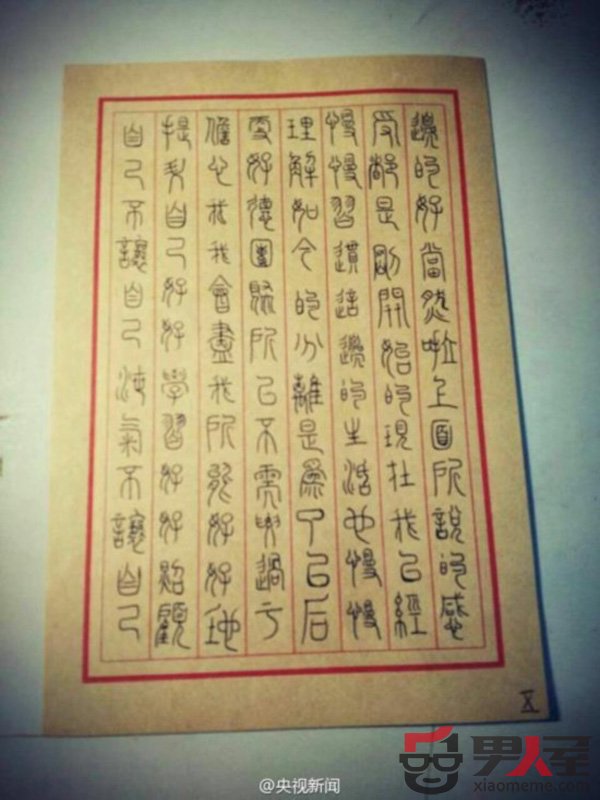 邊的好當然啦上面所說的感
受都是剛開始的現在我已經
慢慢習慣這邊的生活也慢慢
理解如今的分離是為了以后
更好德團聚所以不需要過于
擔心我我會盡我所能好好地
提自己好好學習好好照顧
自己不讓自己氣不讓自己
X
@央视新闻
男人屋
xiaomeme.com